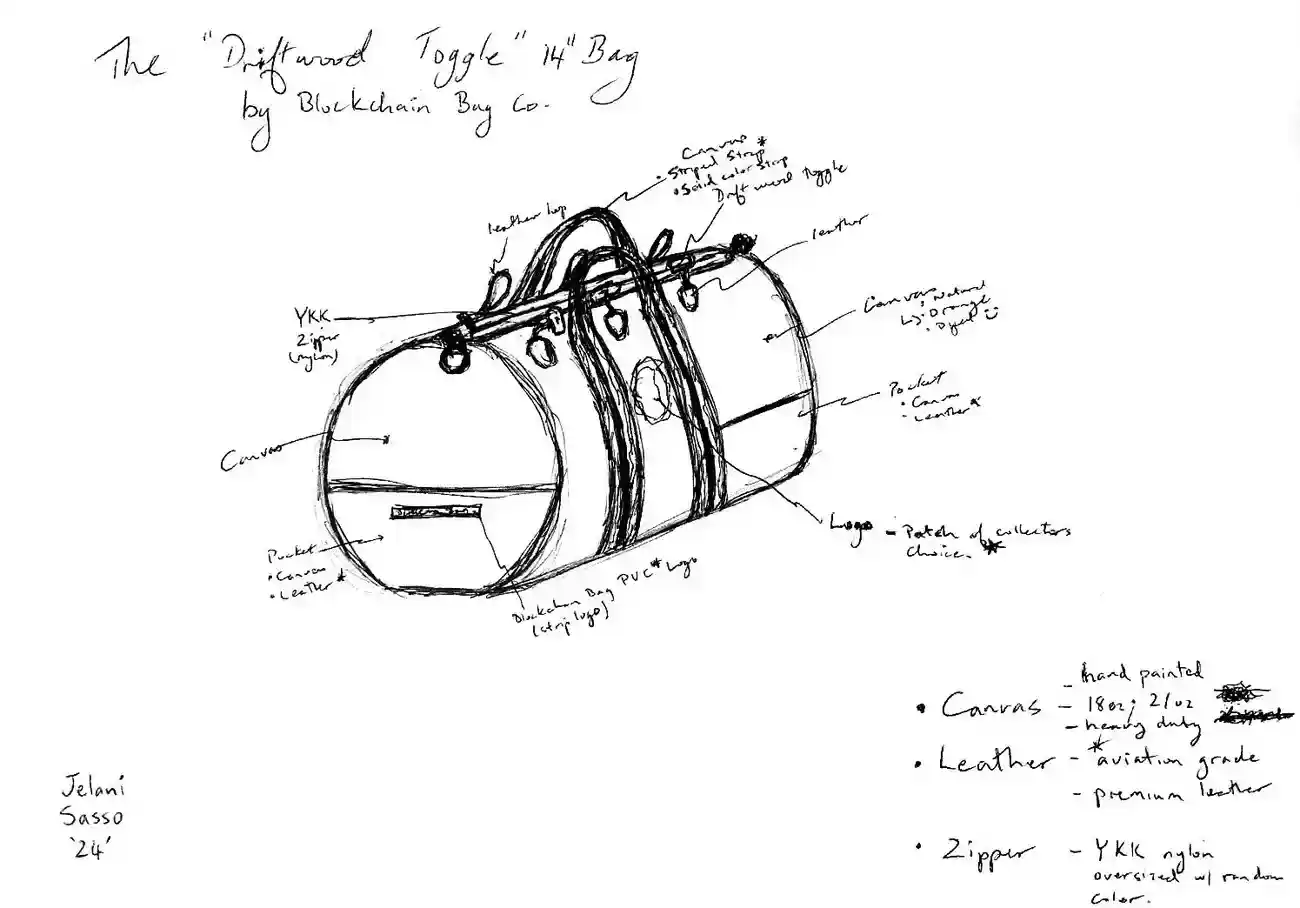 The "Driftwood Toggle" 14" Bag
by Blockchain Bag Co.
Canvas
• Striped Strap *
• Solid color Strap
Driftwood Toggle
leather loop
leather
YKK
Zipper
(nylon)
Canvas • Natural
• Orange
• Dyed
Pocket
• Canvas
• Leather *
Canvas
Logo - Patch of collectors
choice *
Pocket
• Canvas
• Leather *
Blockchain Bag PVC* Logo
(strip logo)
• Canvas - hand painted
- 18oz; 21oz
- heavy duty
• Leather - *aviation grade
- premium leather
• Zipper - YKK nylon
oversized w/ random
color.
Jelani
Sasso
'24'